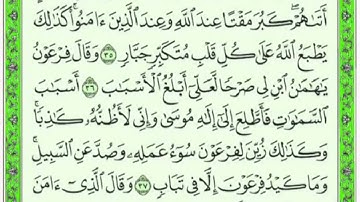 أَتَىٰهُمْ كَبُرَ مَقْتًا عِندَ ٱللَّهِ وَعِندَ ٱلَّذِينَ ءَامَنُوا۟ كَذَٰلِكَ
يَطْبَعُ ٱللَّهُ عَلَىٰ كُلِّ قَلْبِ مُتَكَبِّرٍ جَبَّارٍ ٣٥ وَقَالَ فِرْعَوْنُ
يَٰهَٰمَٰنُ ٱبْنِ لِى صَرْحًا لَّعَلِّىٓ أَبْلُغُ ٱلْأَسْبَٰبَ ٣٦ أَسْبَٰبَ
ٱلسَّمَٰوَٰتِ فَأَطَّلِعَ إِلَىٰٓ إِلَٰهِ مُوسَىٰ وَإِنِّى لَأَظُنُّهُۥ كَٰذِبًا ۚ
وَكَذَٰلِكَ زُيِّنَ لِفِرْعَوْنَ سُوٓءُ عَمَلِهِۦ وَصُدَّ عَنِ ٱلسَّبِيلِ ۚ
وَمَا كَيْدُ فِرْعَوْنَ إِلَّا فِى تَبَابٍ ٣٧ وَقَالَ ٱلَّذِىٓ ءَامَنَ